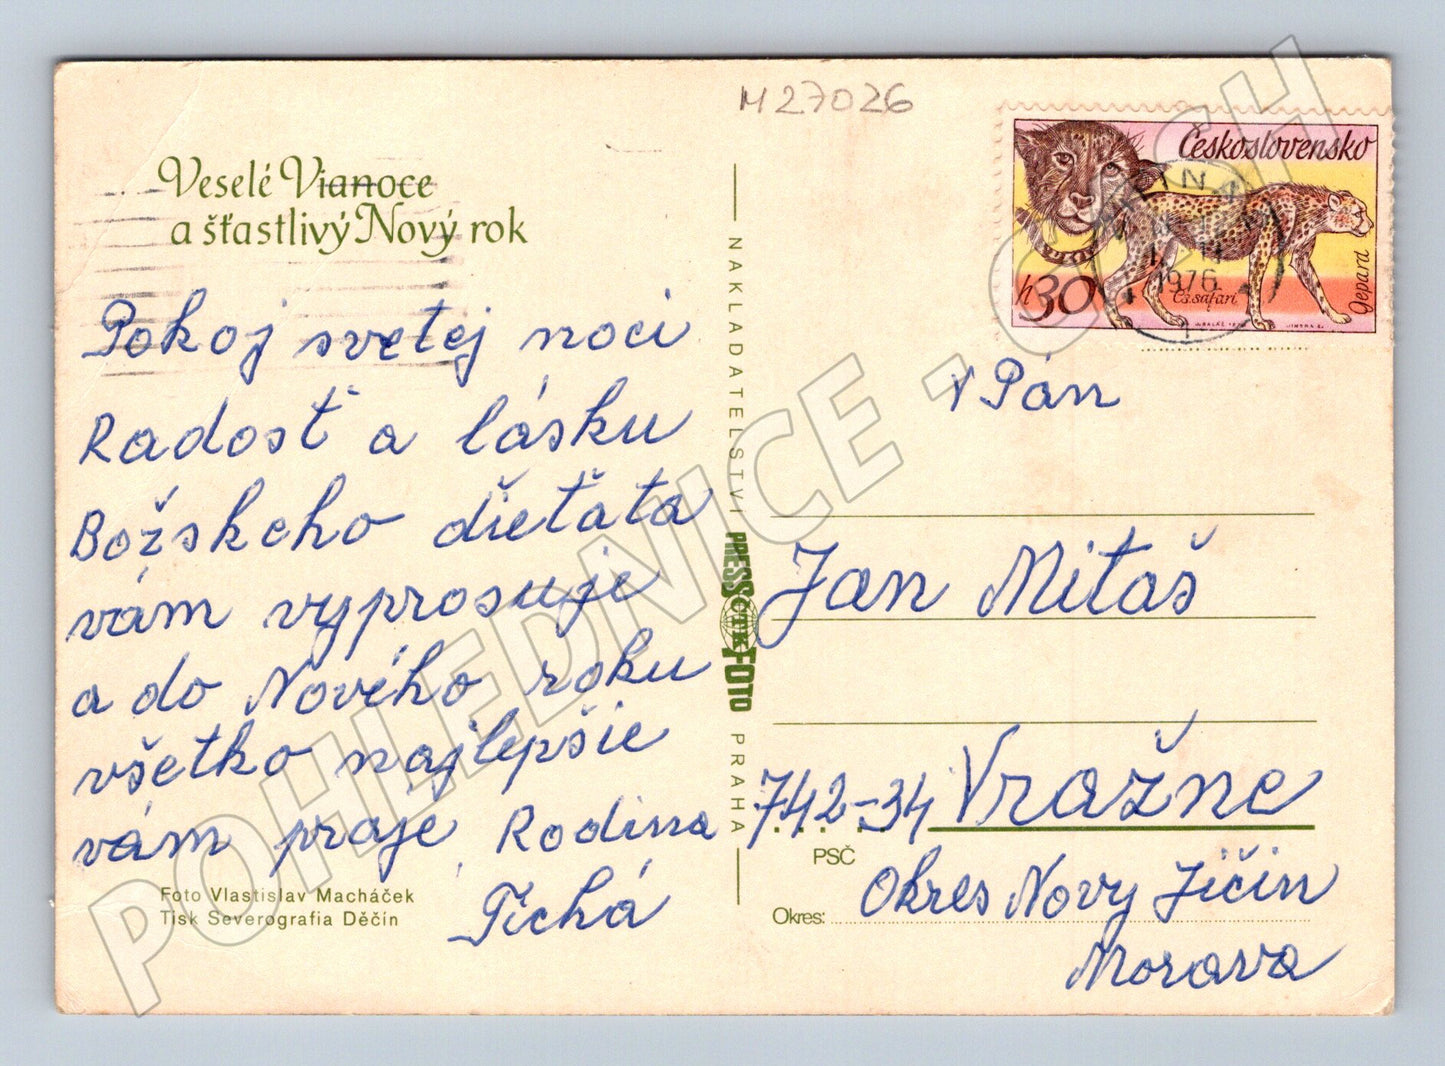 M27026
Veselé Vianoce
a šťastlivý Nový rok
Pokoj svetej noci
Radosť a lásku
Božskeho dieťaťa
vám vyprosuje
a do Nového roku
všetko najlepšie
vám praje Rodina
Tichá
Foto Vlastislav Macháček
Tisk Severografia Děčín
NAKLADATELSTVÍ
PRESSFOTO
ČTK
PRAHA
Československo
h30
Čs. safari
Gepard
1976
Pán
Jan Mitaš
742-34 Vražne
PSČ
Okres: Okres Novy Jičin
Morava
POHLEDNICE - CZ.SH